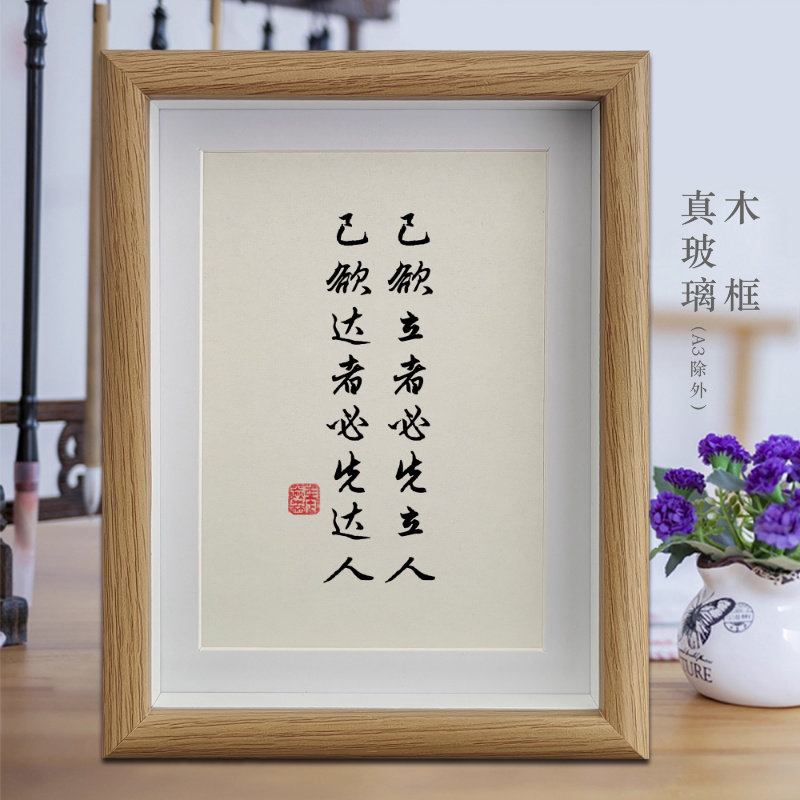 己欲立者必先立人
己欲达者必先达人
木框
真玻璃(A3除外)